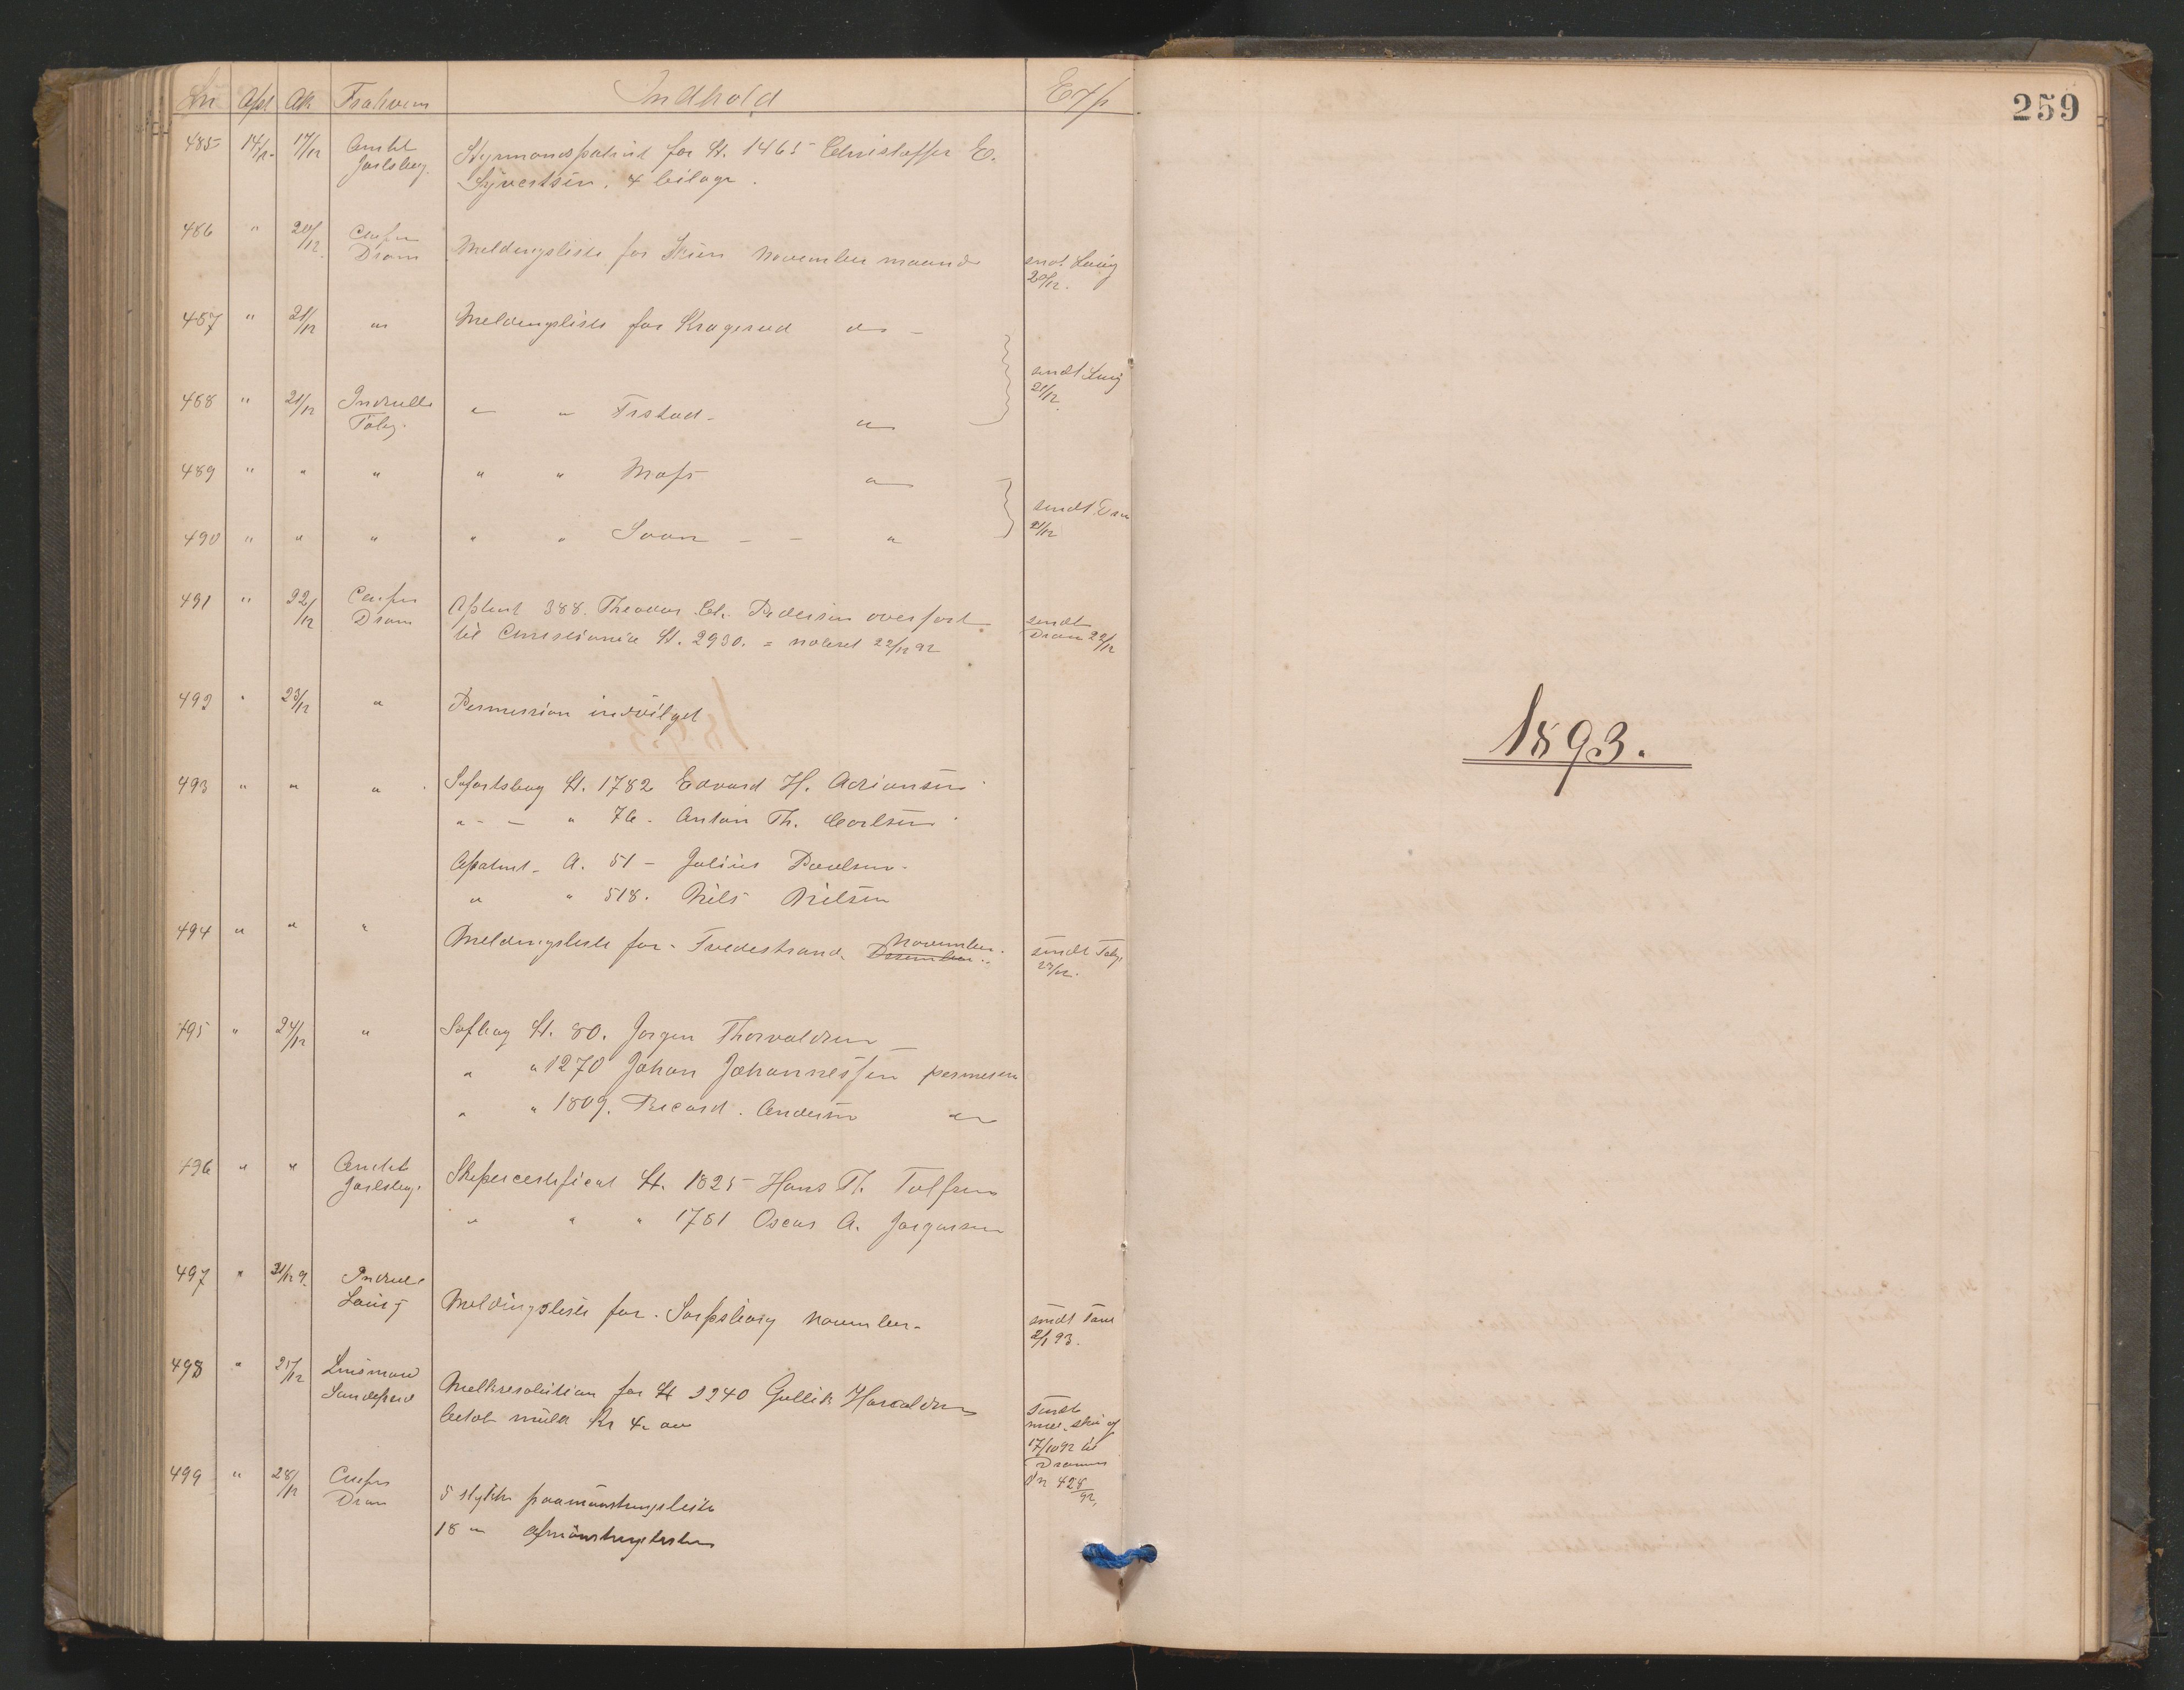 259
Ln Apl Ak Frahvem Indhold Exp
485 14/12 17/12 Amtet Jarlsberg. Styrmandspatent for St. 1465 Christoffer E.
Syvertsen, 4 bilage.
486 " 20/12 Dram Meldingsliste for Skien November maaned
sendt Laurvig
20/12.
487 " 21/12 " Meldingsliste for Kragerød do -
sendt Laurvig
21/12
488 " 21/12 Indrulle " " Frstad - "
Tbg.
489 " " " " " Moss "
490 " " " " " Soon - - "
sendt Dram
21/12
491 " 22/12 Dram Aptent 388. Theodor Chr. Pedersen overført
til Christiania St. 2930. = noteret 22/12 92
sendt
Dram 22/12
492 " 23/12 " Permission indvilget
493 " " " Søfartsbog St. 1782 Edvard H. Adriansen
" - - " 76 - Anton Th. Carlsen
Apatent - A. 51 - Julius Paulsen -
" " 518. Nils Nilsen
494 " " " Meldingsliste for - Tvedestrand. Desember November.
sendt Tbg.
23/12.
495 " 24/12 " Søfbog St. 80. Jørgen Thorvaldsen
" " 1270 Johan Johannessen permision
" " 1809. Ricard. Andersen "
496 " " Amtet Jarlsberg. Skipercertificat St. 1825 - Hans Th. Tolfsen
" " " 1781 Oscar A. Jørgensen
497 " 31/12 9. Indrulle
Laurvig Meldingsliste for - Sarpsborg November -
sendt
2/1 93.
498 " 25/12 Lensmand
Sandeherred Mulktresolution for St 2240 Gullik Haraldsen
betalt mulkt Kr 4 -
sendt
17/10 92 til
Drammen
Jn 428/92,
499 " 28/12 Dram 5 stykker paamønstringsliste
18 " afmønstringslister
1893.